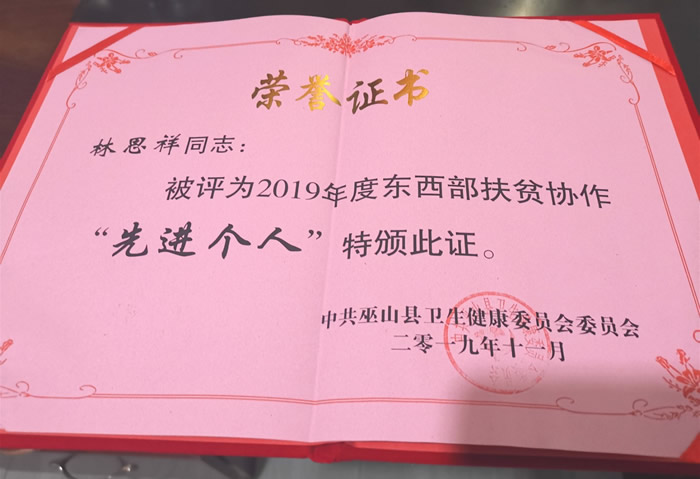 荣誉证书
林思祥同志：
被评为2019年度东西部扶贫协作
“先进个人”特颁此证。
中共巫山县卫生健康委员会委员会
二零一九年十一月